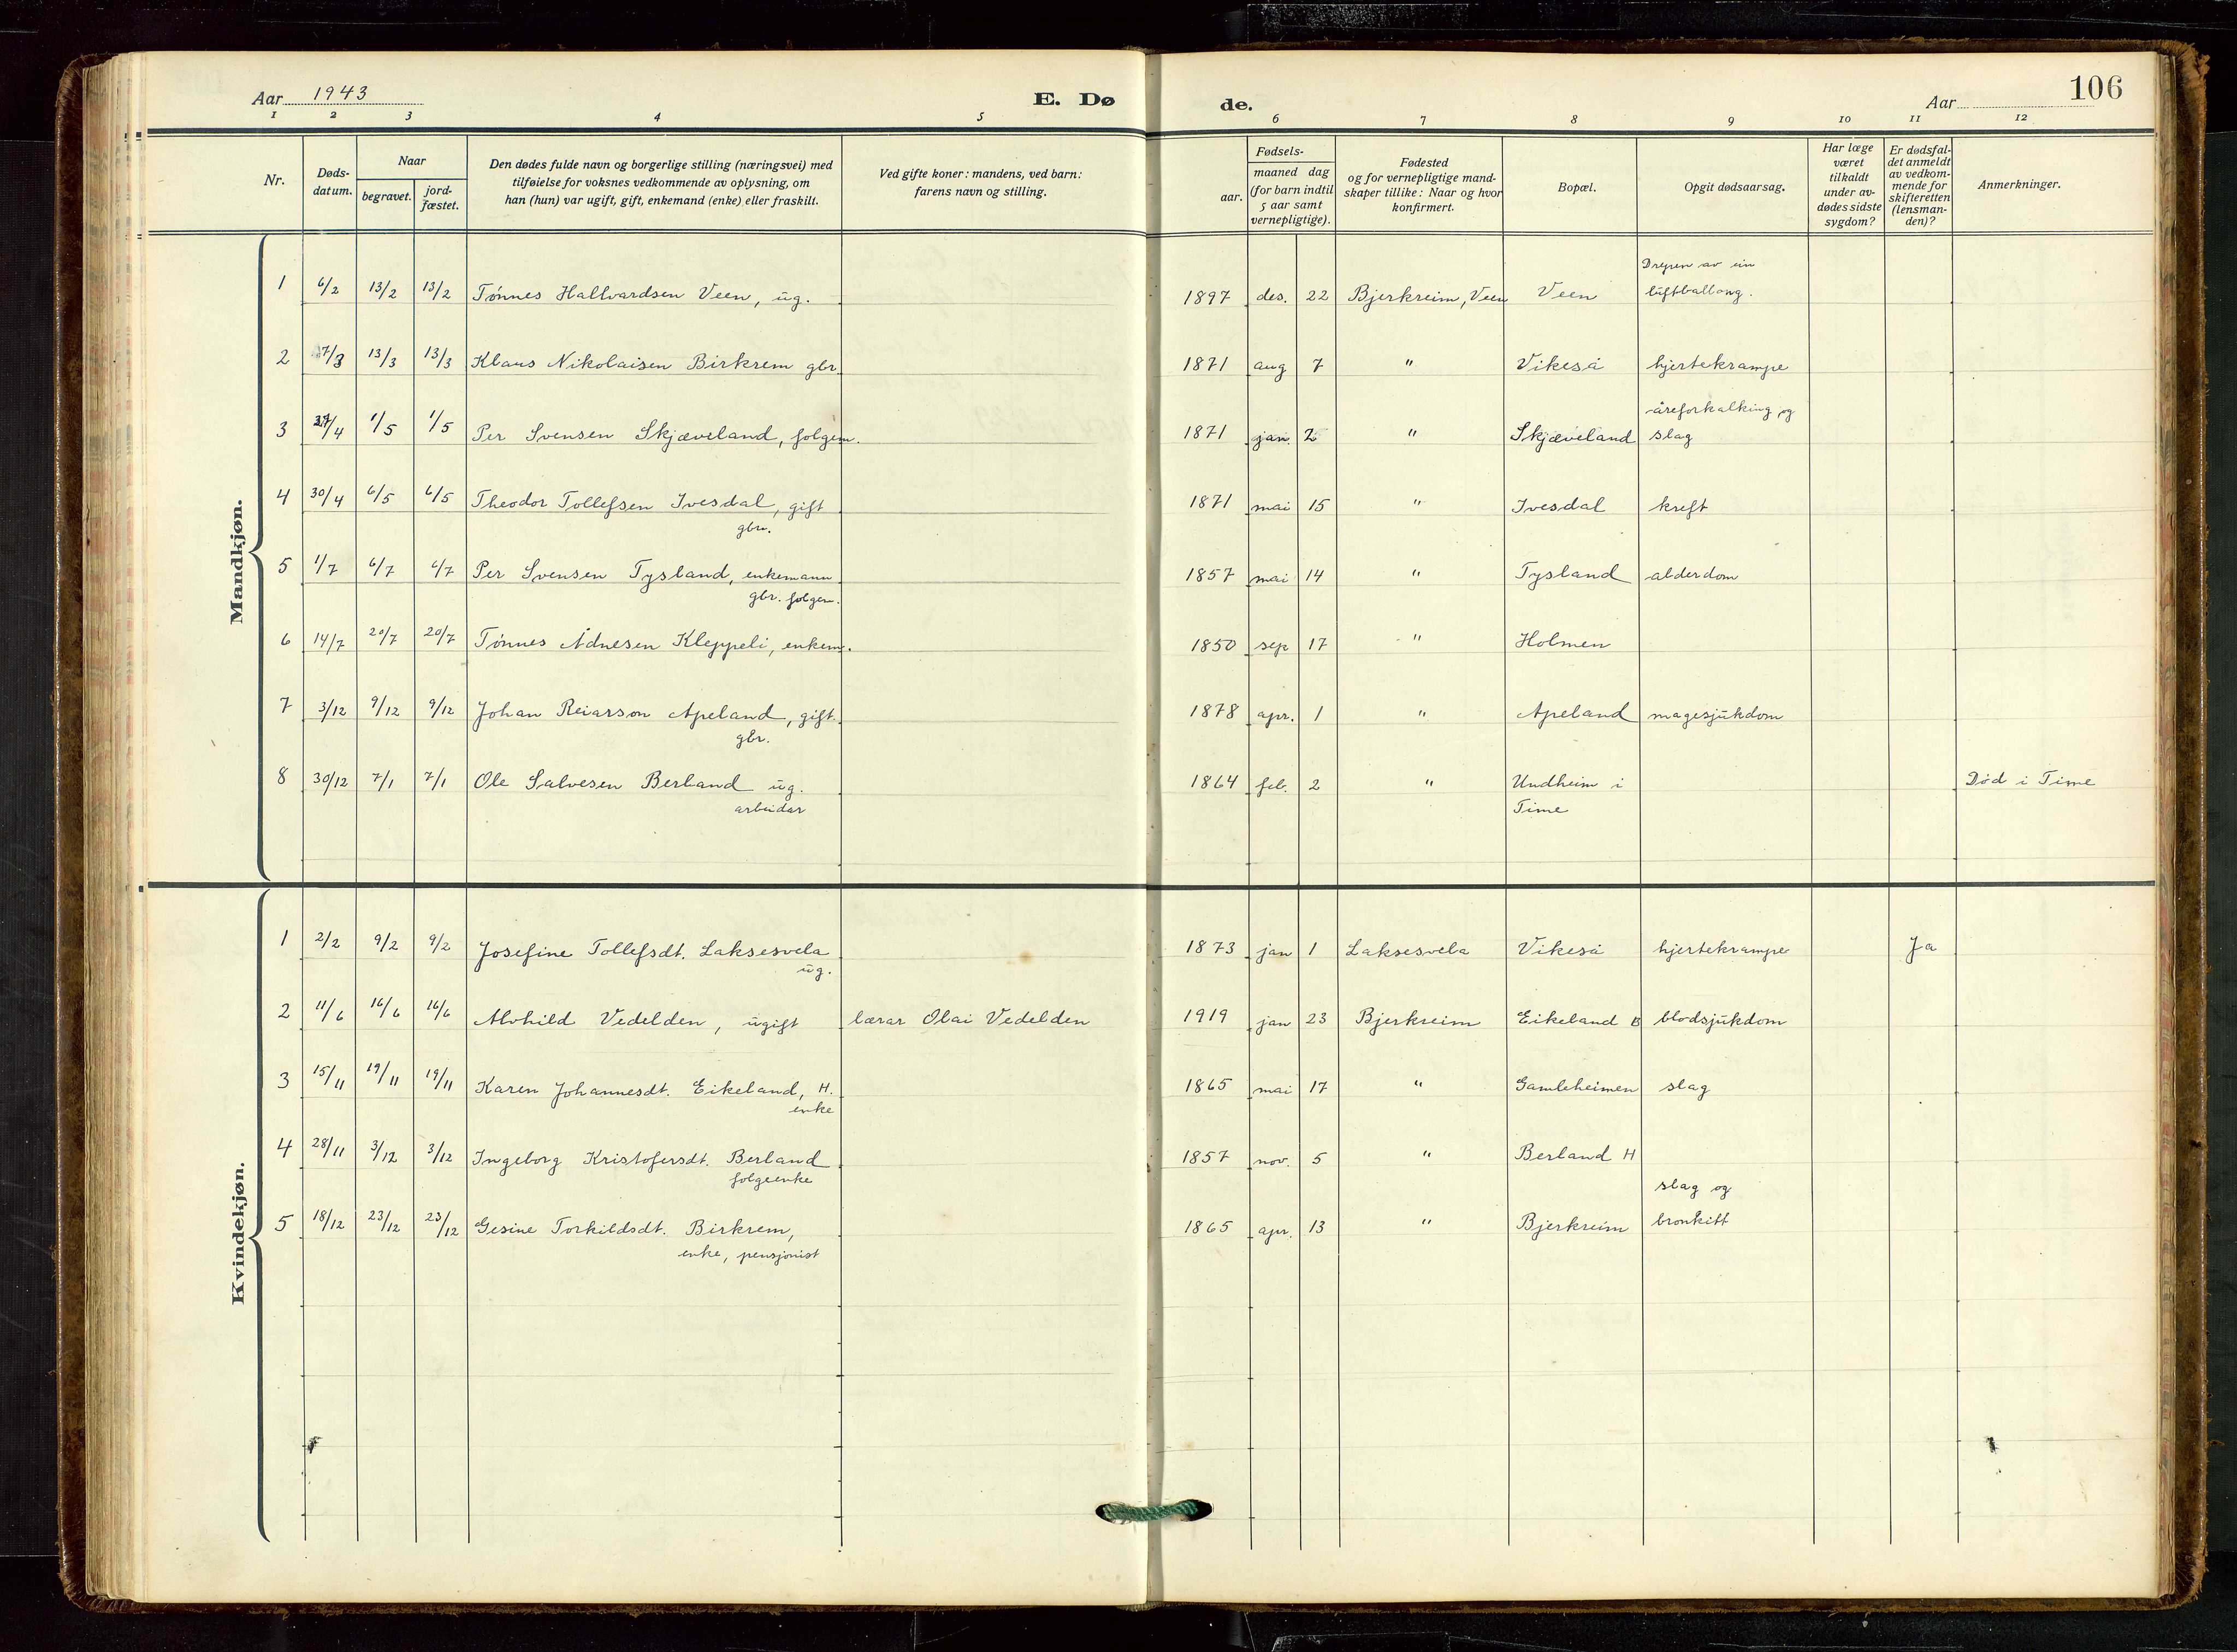 Aar 1943
E. Dø
de.
Aar
106
1 2 3 4 5 6 7 8 9 10 11 12
Nr.
Døds-
datum.
Naar
begravet.
jord-
fæstet.
Den dødes fulde navn og borgerlige stilling (næringsvei) med
tilføielse for voksnes vedkommende av oplysning, om
han (hun) var ugift, gift, enkemand (enke) eller fraskilt.
Ved gifte koner: mandens, ved barn:
farens navn og stilling.
Fødsels-
aar.
maaned dag
(for barn indtil
5 aar samt
vernepligtige).
Fødested
og for vernepligtige mand-
skaper tillike: Naar og hvor
konfirmert.
Bopæl.
Opgit dødsaarsag.
Har læge
været
tilkaldt
under av-
dødes sidste
sygdom?
Er dødsfal-
det anmeldt
av vedkom-
mende for
skifteretten
(lensman-
den)?
Anmerkninger.
Mandkjøn.
Drepen av ein
1 6/2 13/2 13/2 Tønnes Hallvardsen Veen, ug. 1897 des. 22 Bjerkreim, Veen Veen luftballong.
2 7/3 13/3 13/3 Klaus Nikolaisen Birkrem gbr. 1871 aug 7 " Vikeså hjertekrampe
åreforkalking og
3 27/4 1/5 1/5 Per Svensen Skjæveland, folgem. 1871 jan 2 " Skjæveland slag
4 30/4 6/5 6/5 Theodor Tollefsen Ivesdal, gift 1871 mai 15 " Ivesdal kreft
gbr.
5 1/7 6/7 6/7 Per Svensen Tysland, enkemann 1857 mai 14 " Tysland alderdom
gbr. folgem.
6 14/7 20/7 20/7 Tønnes Ådnesen Kleppeli, enkem. 1850 sep 17 " Holmen
7 3/12 9/12 9/12 Johan Reiarson Apeland, gift. 1878 apr. 1 " Apeland magesjukdom
gbr.
8 30/12 7/1 7/1 Ole Salvesen Berland ug. 1864 feb. 2 " Undheim i Død i Time
arbeidar Time
Kvindekjøn.
1 2/2 9/2 9/2 Josefine Tollefsdt. Laksesvela 1873 jan 1 Laksesvela Vikeså hjertekrampe Ja
ug.
2 11/6 16/6 16/6 Alvhild Vedelden, ugift lærar Olai Vedelden 1919 jan 23 Bjerkreim Eikeland B blodsjukdom
3 15/11 19/11 19/11 Karen Johannesdt. Eikeland, H. 1865 mai 17 " Gamleheimen slag
enke
4 28/11 3/12 3/12 Ingeborg Kristofersdt. Berland 1857 nov. 5 " Berland H
folgeenke
slag og
5 18/12 23/12 23/12 Gesine Torkildsdt. Birkrem, 1865 apr. 13 " Bjerkreim bronkitt
enke, pensjonist